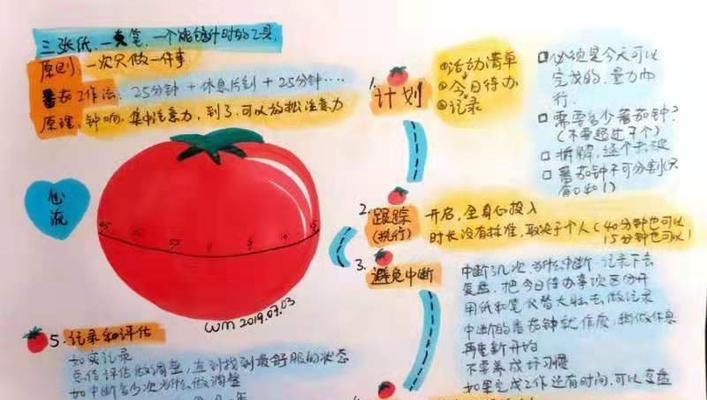 三张纸,一支笔,一个能够计时的工具.
原则:一次只做一件事
番茄工作法:25分钟+休息片刻+25分钟……
原理:钟响,集中注意力,到了,可以放松注意力
心流
wm 2019.07.03
1.
计划
①活动清单
②今日待办
③记录
□必须是今天可以
完成的,量力而
行.
□需要多少番茄钟?
(不要超过7个)
□拆解,逐个击破
□番茄钟不可分割(只
有0和1)
2.
跟踪
(执行)
开启,全身心投入
时长没有标准,取决于个人(40分钟也可以
15分钟也可以)
3.
避免中断
中断几次,为什么中断,记录下去
复盘,把今日待办事项区分开
用纸和笔代替大脑去做记录
中断的番茄钟就作废,稍做休息
再重新开始
不要养成坏习惯
如果完成工作还有时间,可以复盘
5.记录和评估
如实记录
总结评估做调整,直到找到最舒服的状态
如中断多少次为什么做调整
4.